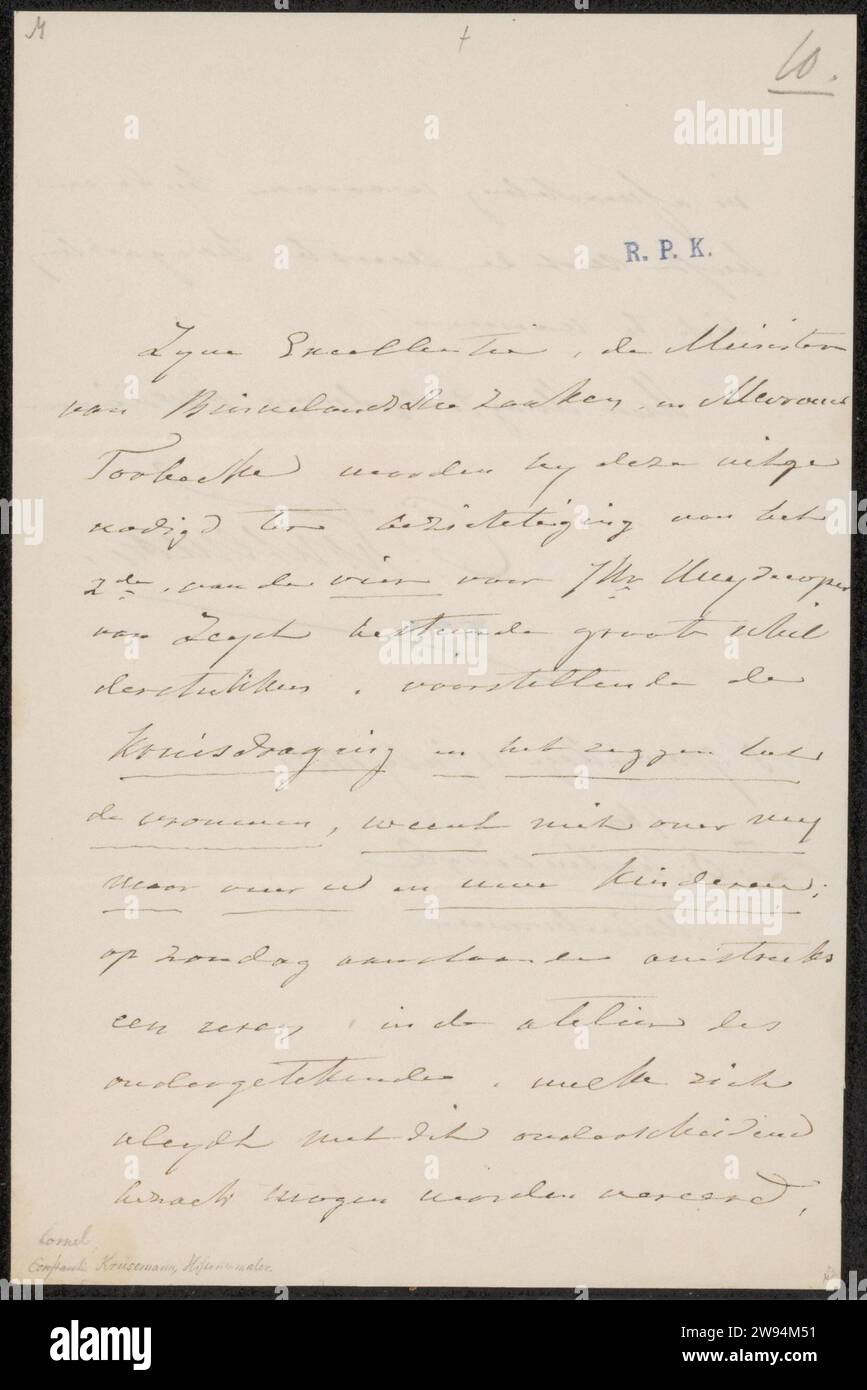 M
+
10.
R. P. K.
Zyne Excellentie, de Minister
van Binnelandsche zaaken, en Mevrouw
Torbecke worden by deze uitge
nodigd ter bezichteiging van het
2de, van de vier voor JHr Huydecoper
van Zeyst bestemde groote schil
derstukken, voorstellende de
Kruisdraging en het zeggen tot
de vrouwen, weent niet over my
maar over u en uwe kinderen;
op zondag aanstaande omstreeks
een uren, in de atelier des
ondergetekende, welke zich
altydt met dit onderscheidend
bezoek mogen worden vereerd,
Cornel.
Constantin Krüsemann, Historienmaler.
alamy
Image ID: 2W94M51
www.alamy.com